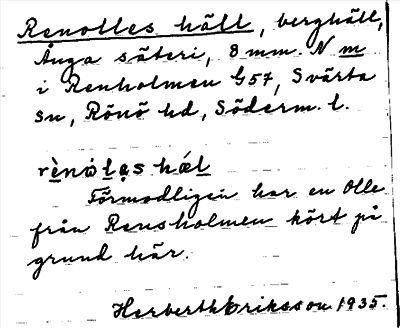 Renolles häll, berghäll,
Ånga säteri, 8 mm. N m
i Renholmen G57, Svärta
sn, Rönö hd, Söderm. l.
rènòlas hæl
Förmodligen har en Olle
från Rensholmen kört på
grund här.
Herberth Eriksson 1935.